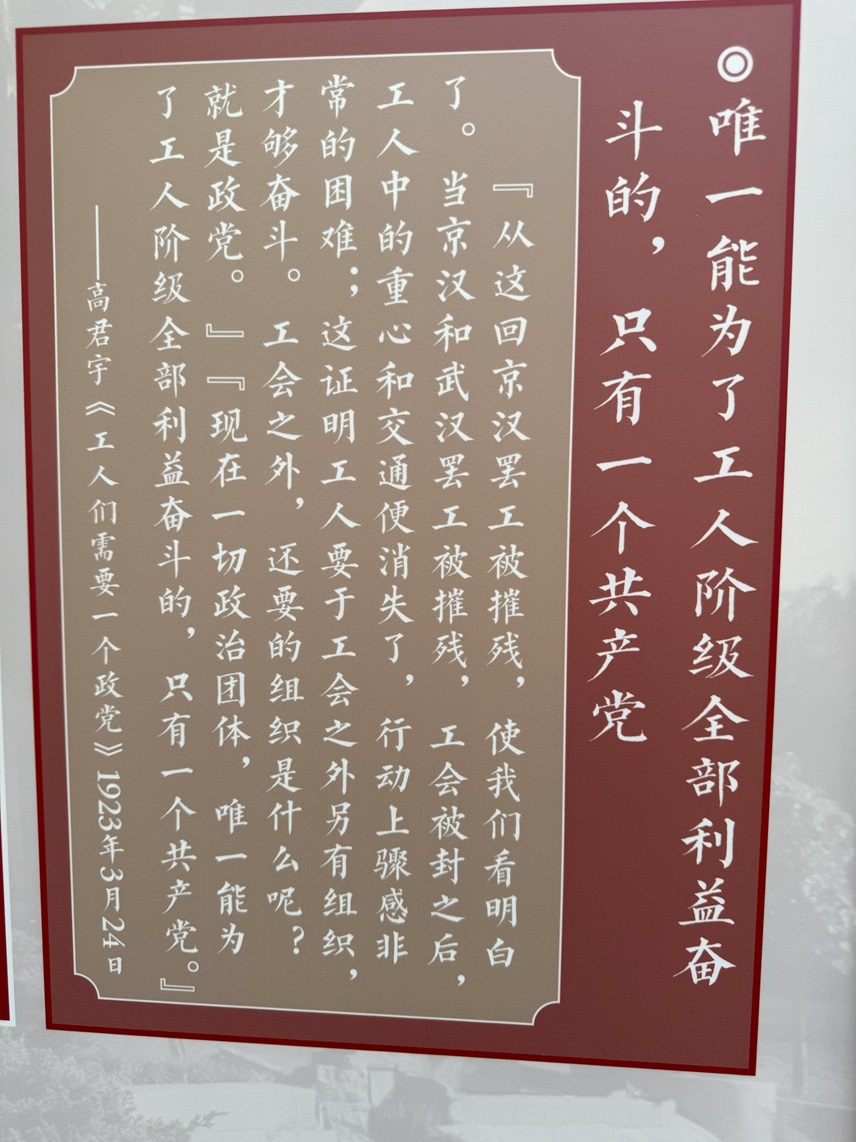 ◎唯一能为了工人阶级全部利益奋
斗的，只有一个共产党
『从这回京汉罢工被摧残，使我们看明白
了。当京汉和武汉罢工被摧残，工会被封之后，
工人中的重心和交通便消失了，行动上骤感非
常的困难；这证明工人要于工会之外另有组织，
才够奋斗。工会之外，还要的组织是什么呢？
就是政党。』『现在一切政治团体，唯一能为
了工人阶级全部利益奋斗的，只有一个共产党。』
——高君宇《工人们需要一个政党》1923年3月24日